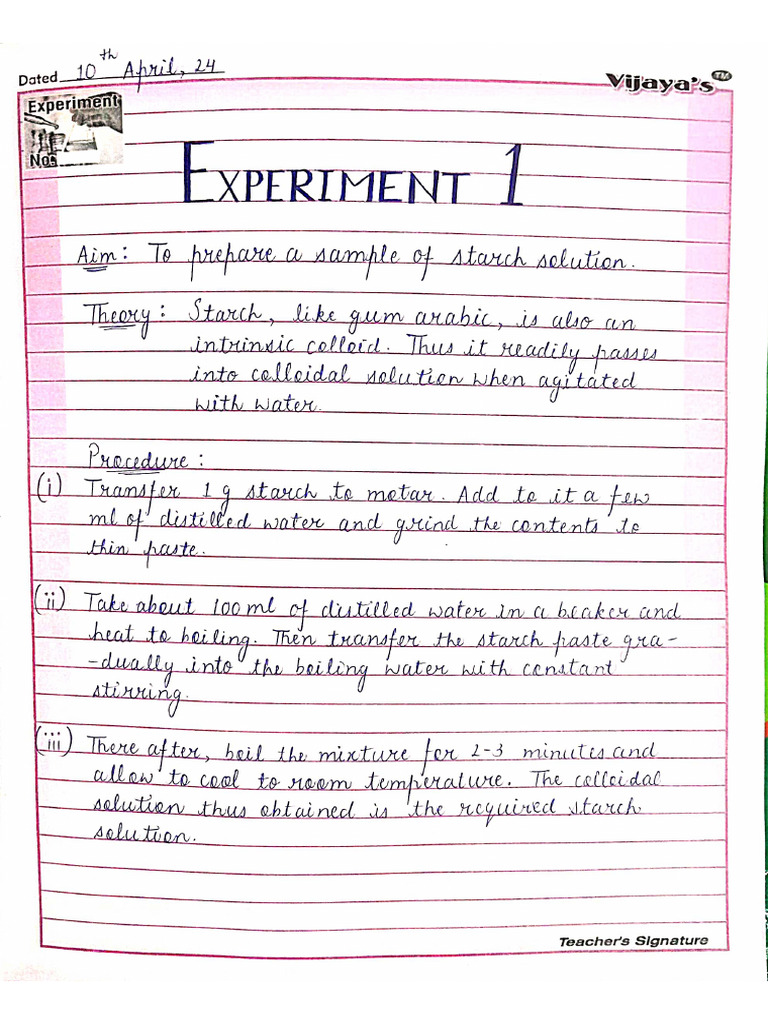 Dated 10th April, 24
Vijaya's TM
Experiment
No.
EXPERIMENT 1
Aim: To prepare a sample of starch solution.
Theory: Starch, like gum arabic, is also an
intrinsic colloid. Thus it readily passes
into colloidal solution when agitated
with water.
Procedure:
(i) Transfer 1 g starch to motar. Add to it a few
ml of distilled water and grind the contents to
thin paste.
(ii) Take about 100 ml of distilled water in a beaker and
heat to boiling. Then transfer the starch paste gra-
-dually into the boiling water with constant
stirring.
(iii) There after, boil the mixture for 2-3 minutes and
allow to cool to room temperature. The colloidal
solution thus obtained is the required starch
solution.
Teacher's Signature